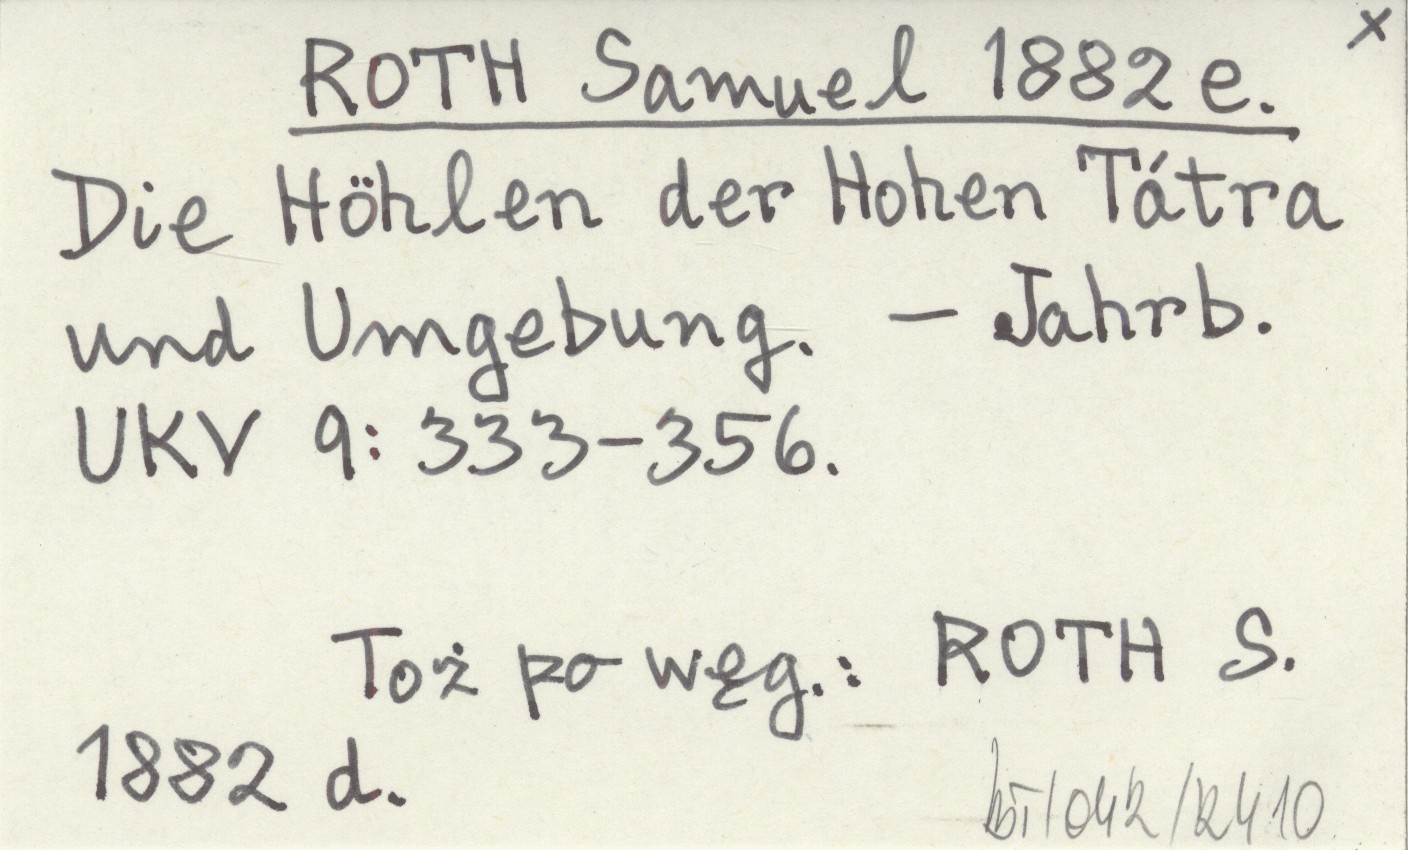 x
ROTH Samuel 1882 e.
Die Höhlen der Hohen Tátra
und Umgebung. – Jahrb.
UKV 9: 333–356.
Toż po węg.: ROTH S.
1882 d.